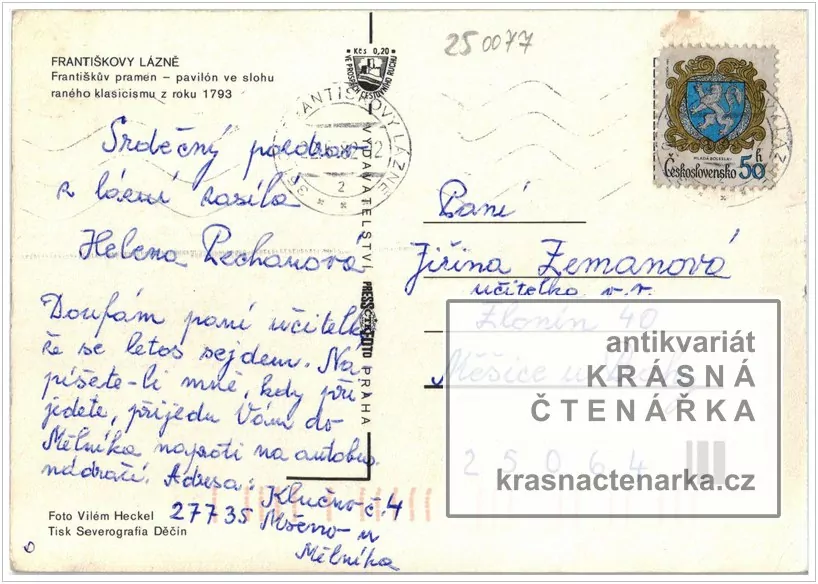 FRANTIŠKOVY LÁZNĚ
Františkův pramen – pavilón ve slohu
raného klasicismu z roku 1793
Kčs 0,20
VE PROSPĚCH CESTOVNÍHO RUCHU
250077
FRANTIŠKOVY LÁZNĚ
MLADÁ BOLESLAV
Československo 50 h
Srdečný pozdrav
z lázní zasílá
Helena Pechanová
Doufám paní učitelko
že se letos sejdem. Na-
píšete-li mně, kdy při-
jedete, přijedu Vám do
Mělníka naproti na autobus.
nádraží. Adresa:
Klučno č. 4
27735 Mšeno u
Mělníka
VYDAVATELSTVÍ PRESSFOTO PRAHA
Paní
Jiřina Zemanová
učitelka v. v.
Zlonín 40
Měšice u
25064
antikvariát
KRÁSNÁ
ČTENÁŘKA
krasnactenarka.cz
Foto Vilém Heckel
Tisk Severografia Děčín